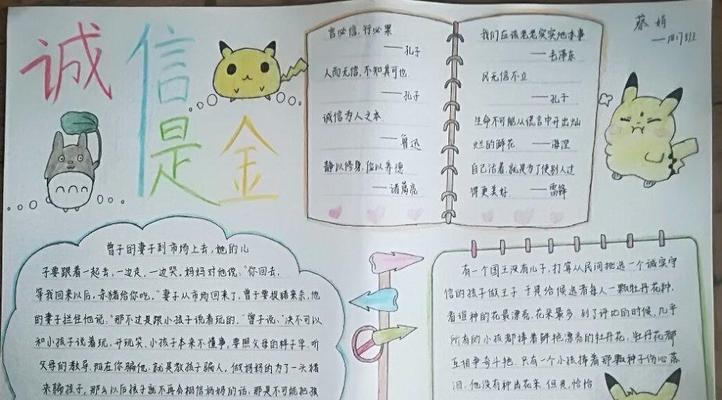 诚信是金
言必信,行必果
——孔子
人而无信,不知其可也
——孔子
诚信为人之本
——鲁迅
静以修身,俭以养德
——诸葛亮
我们应该老老实实地办事
——毛泽东
民无信不立
——孔子
生命不可能从谎言中开出灿
烂的鲜花 ——海涅
自己活着,就是为了使别人过
得更美好 ——雷锋
蔡
曾子的妻子到市场上去,她的儿
子要跟着一起去,一边走,一边哭。妈妈对他说:"你回去,
等我回来以后,杀猪给你吃。"妻子从市场回来了,曾子要捉猪来杀,他
的妻子拦住他说:"那不过是跟小孩子说着玩的。"曾子说:"决不可以
和小孩子说着玩,开玩笑,小孩子本来不懂事,要照父母的样子学,听
父母的教导。现在你骗他,就是教孩子骗人,做妈妈的为了一头猪
来骗孩子,那么以后孩子就不再会相信妈妈的话,那是不可能把孩
有一个国王没有儿子,打算从民间挑选一个诚实守
信的孩子做王子 于是给候选者每人一颗牡丹花种,
看谁种的花最漂亮,花朵最多 到了评比的时候,几乎
所有的小孩都捧着鲜艳漂亮的牡丹花,牡丹花都
互相争奇斗艳。只有一个小孩捧着那颗种子伤心落
泪,他没有种出花来 但是,恰恰